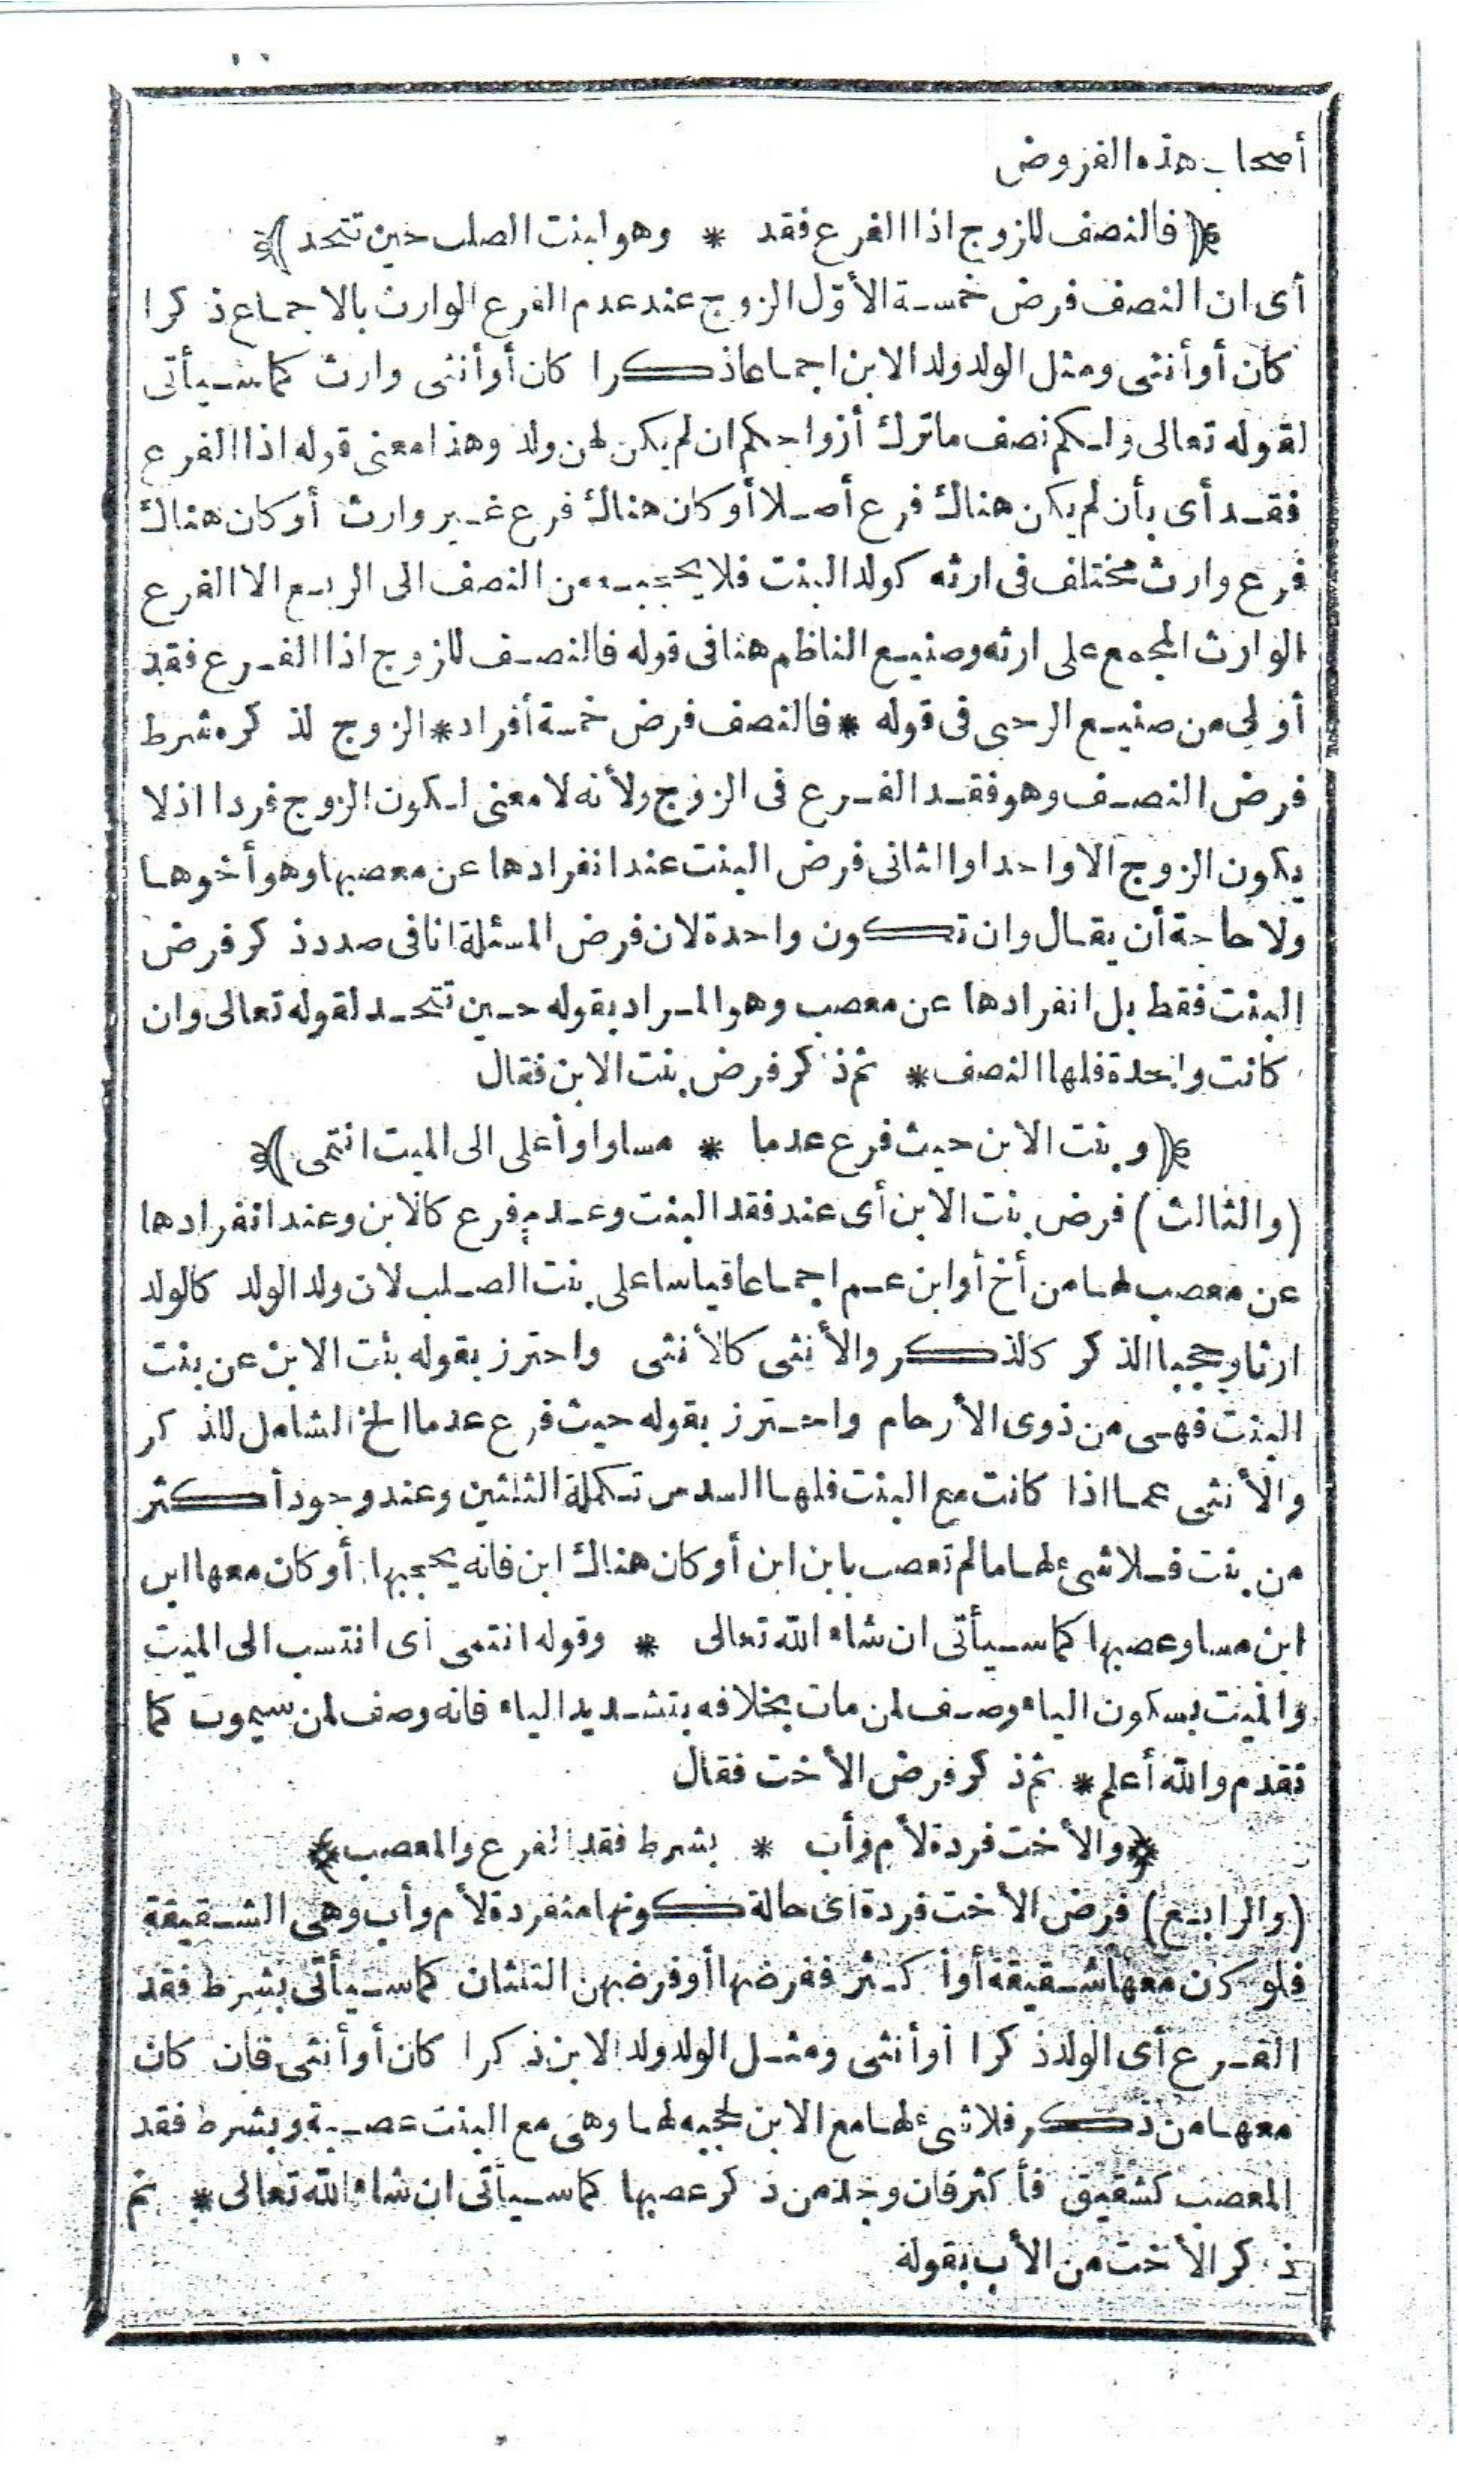 أصحاب هذه الفروض
﴿فالنصف للزوج اذا الفرع فقد * وهو لبنت الصلب حين تتحد﴾
أى ان النصف فرض خمسة الأوّل الزوج عند عدم الفرع الوارث بالاجماع ذكرا
كان أو أنثى ومثل الولد ولد الابن اجماعا ذكرا كان أو أنثى وارث كما سيأتى
لقوله تعالى ولكم نصف ماترك أزواجكم ان لم يكن لهن ولد وهذا معنى قوله اذا الفرع
فقد أى بأن لم يكن هناك فرع أصلا أو كان هناك فرع غير وارث أو كان هناك
فرع وارث مختلف فى ارثه كولد البنت فلا يحجبه من النصف الى الربع الا الفرع
الوارث المجمع على ارثه وصنيع الناظم هنا فى قوله فالنصف للزوج اذا الفرع فقد
أولى من صنيع الرحبى فى قوله * فالنصف فرض خمسة أفراد * الزوج لذكره شرط
فرض النصف وهو فقد الفرع فى الزوج ولأنه لا معنى لكون الزوج فردا اذ لا
يكون الزوج الا واحدا والثانى فرض البنت عند انفرادها عن معصبها وهو أخوها
ولا حاجة أن يقال وان تكون واحدة لان فرض المسئلة انا فى صدد ذكر فرض
البنت فقط بل انفرادها عن معصب وهو المراد بقوله حين تتحد لقوله تعالى وان
كانت واحدة فلها النصف * ثم ذكر فرض بنت الابن فقال
﴿وبنت الابن حيث فرع عدما * مساو او أعلى الى الميت انتمى﴾
(والثالث) فرض بنت الابن أى عند فقد البنت وعدم فرع كالابن وعند انفرادها
عن معصب لها من أخ أو ابن عم اجماعا قياسا على بنت الصلب لان ولد الولد كالولد
ارثا وحجبا الذكر كالذكر والأنثى كالأنثى واحترز بقوله بنت الابن عن بنت
البنت فهى من ذوى الأرحام واحترز بقوله حيث فرع عدما الخ الشامل للذكر
والأنثى عما اذا كانت مع البنت فلها السدس تكملة الثلثين وعند وجود أكثر
من بنت فلا شئ لها ما لم تعصب بابن ابن أو كان هناك ابن فانه يحجبها أو كان معها ابن
ابن مساو عصبها كما سيأتى ان شاء الله تعالى * وقوله انتمى أى انتسب الى الميت
والميت بسكون الياء وصف لمن مات بخلافه بتشديد الياء فانه وصف لمن سيموت كما
تقدم والله أعلم * ثم ذكر فرض الأخت فقال
﴿والأخت فردة لأم وأب * بشرط فقد الفرع والمعصب﴾
(والرابع) فرض الأخت فردة أى حالة كونها منفردة لأم وأب وهى الشقيقة
فلو كان معها شقيقة أو أكثر ففرضها أو فرضهن الثلثان كما سيأتى بشرط فقد
الفرع أى الولد ذكرا أو أنثى ومثل الولد ولد الابن ذكرا كان أو أنثى فان كان
معها من ذكر فلا شئ لها مع الابن لحجبه لها وهى مع البنت عصبة وبشرط فقد
المعصب كشقيق فأكثر فان وجد من ذكر عصبها كما سيأتى ان شاء الله تعالى * ثم
ذكر الأخت من الأب بقوله